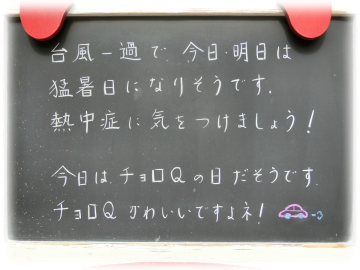 台風一過で、今日・明日は
猛暑日になりそうです。
熱中症に気をつけましょう!
今日は、チョロQの日だそうです。
チョロQ かわいいですよネ!